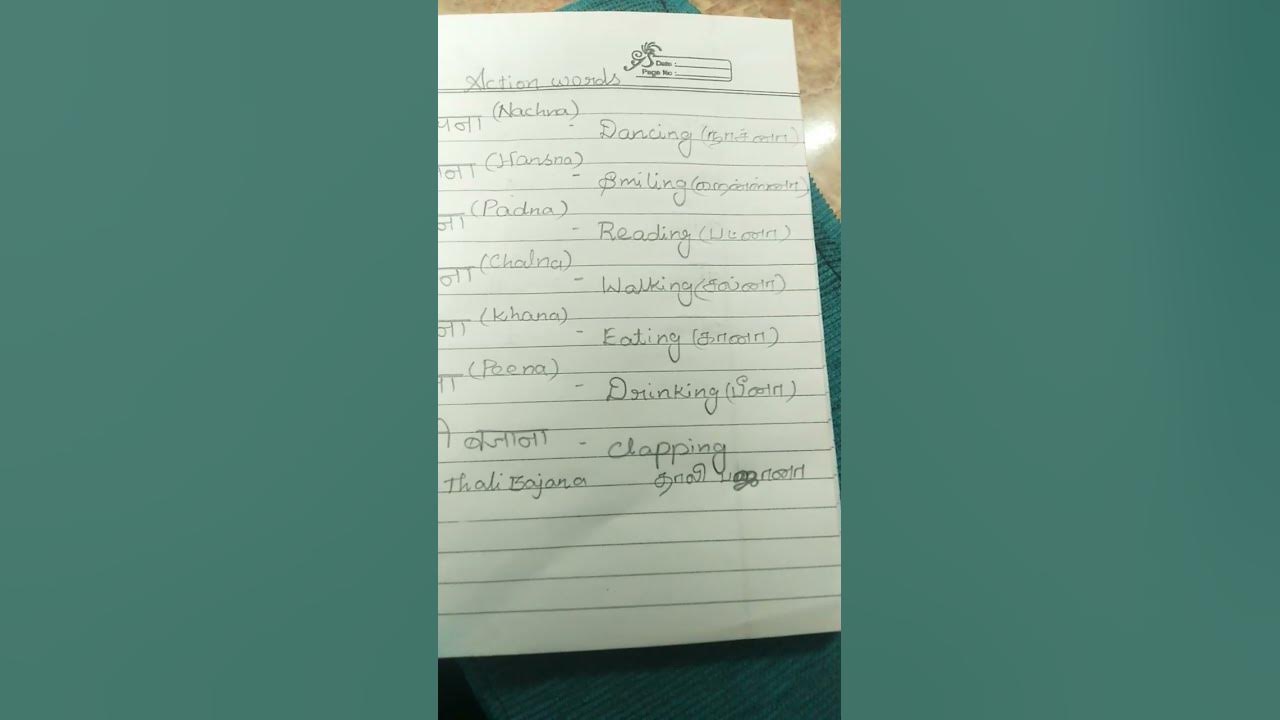 Date :
Page No :
Action words
चना (Nachna) - Dancing (நாச்னா)
ना (Hansna) - Smiling
ना (Padna) - Reading (படனா)
ना (Chalna) - Walking (சல்னா)
ना (Khana) - Eating (கானா)
ना (Peena) - Drinking (பீனா)
बजाना - Clapping
Thali Bajana தாலி